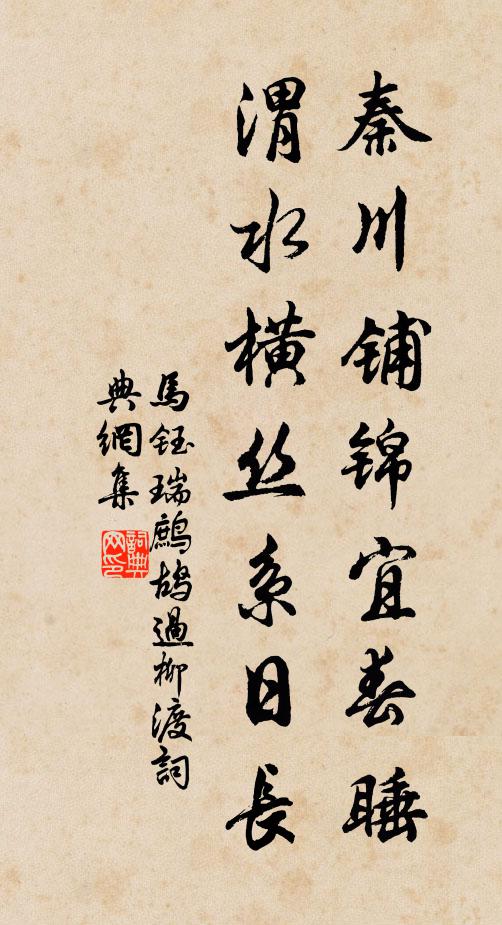 秦川铺锦宜春睡
渭水横丝系日長
馬鈺瑞鷓鴣過柳渡詞
典網集
詞典
网印